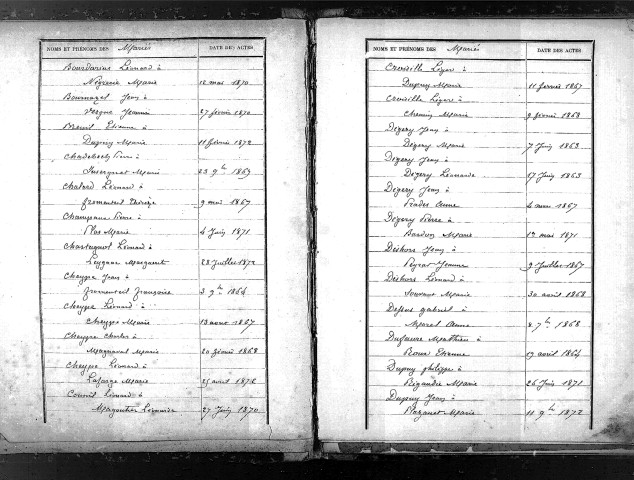 NOMS ET PRÉNOMS DES Mariés DATE DES ACTES
Bourdarias Léonard à
Négrerie Marie 12 mai 1870
Bournazel Jean à
Vergne Jeanne 27 février 1870
Breuil Etienne à
Dupuy Marie 11 février 1872
Chadebech Pierre à
Marie 23 9bre 1863
Chatard Léonard à
froment Thérèse 9 mai 1867
Champeaux Pierre à
Plas Marie 4 Juin 1871
Chastagnol Léonard à
Leygnac Marguerite 28 Juillet 1872
Cheype Jean à
fromenteil françoise 3 9bre 1864
Cheype Léonard à
Cheype Marie 13 aout 1867
Cheype Charles à
Magnaval Marie 20 février 1868
Cheype Léonard à
Lafarge Marie 25 1872
Conseil Léonard à
Léonarde 27 Juin 1870
NOMS ET PRÉNOMS DES Mariés DATE DES ACTES
Croisille Léger à
Dupuy Marie 11 février 1867
Croisille Léger à
Marie 9 février 1868
Dégery Jean à
Dégery Marie 7 Juin 1863
Dégery Jean à
Dégery Léonarde 17 Juin 1863
Dégery Jean à
Prades Anne 4 1867
Dégery Pierre à
Bardon Marie 12 mai 1871
Deshors Jean à
Peyrat Jeanne 9 Juillet 1867
Deshors Léonard à
Marie 30 avril 1868
gabriel à
Anne 8 7bre 1868
Dufaure Matthieu à
Roux Etienne 17 avril 1864
Dupuy philippe à
Rigaudie Marie 26 Juin 1871
Dupuy Jean à
Marie 11 9bre 1872